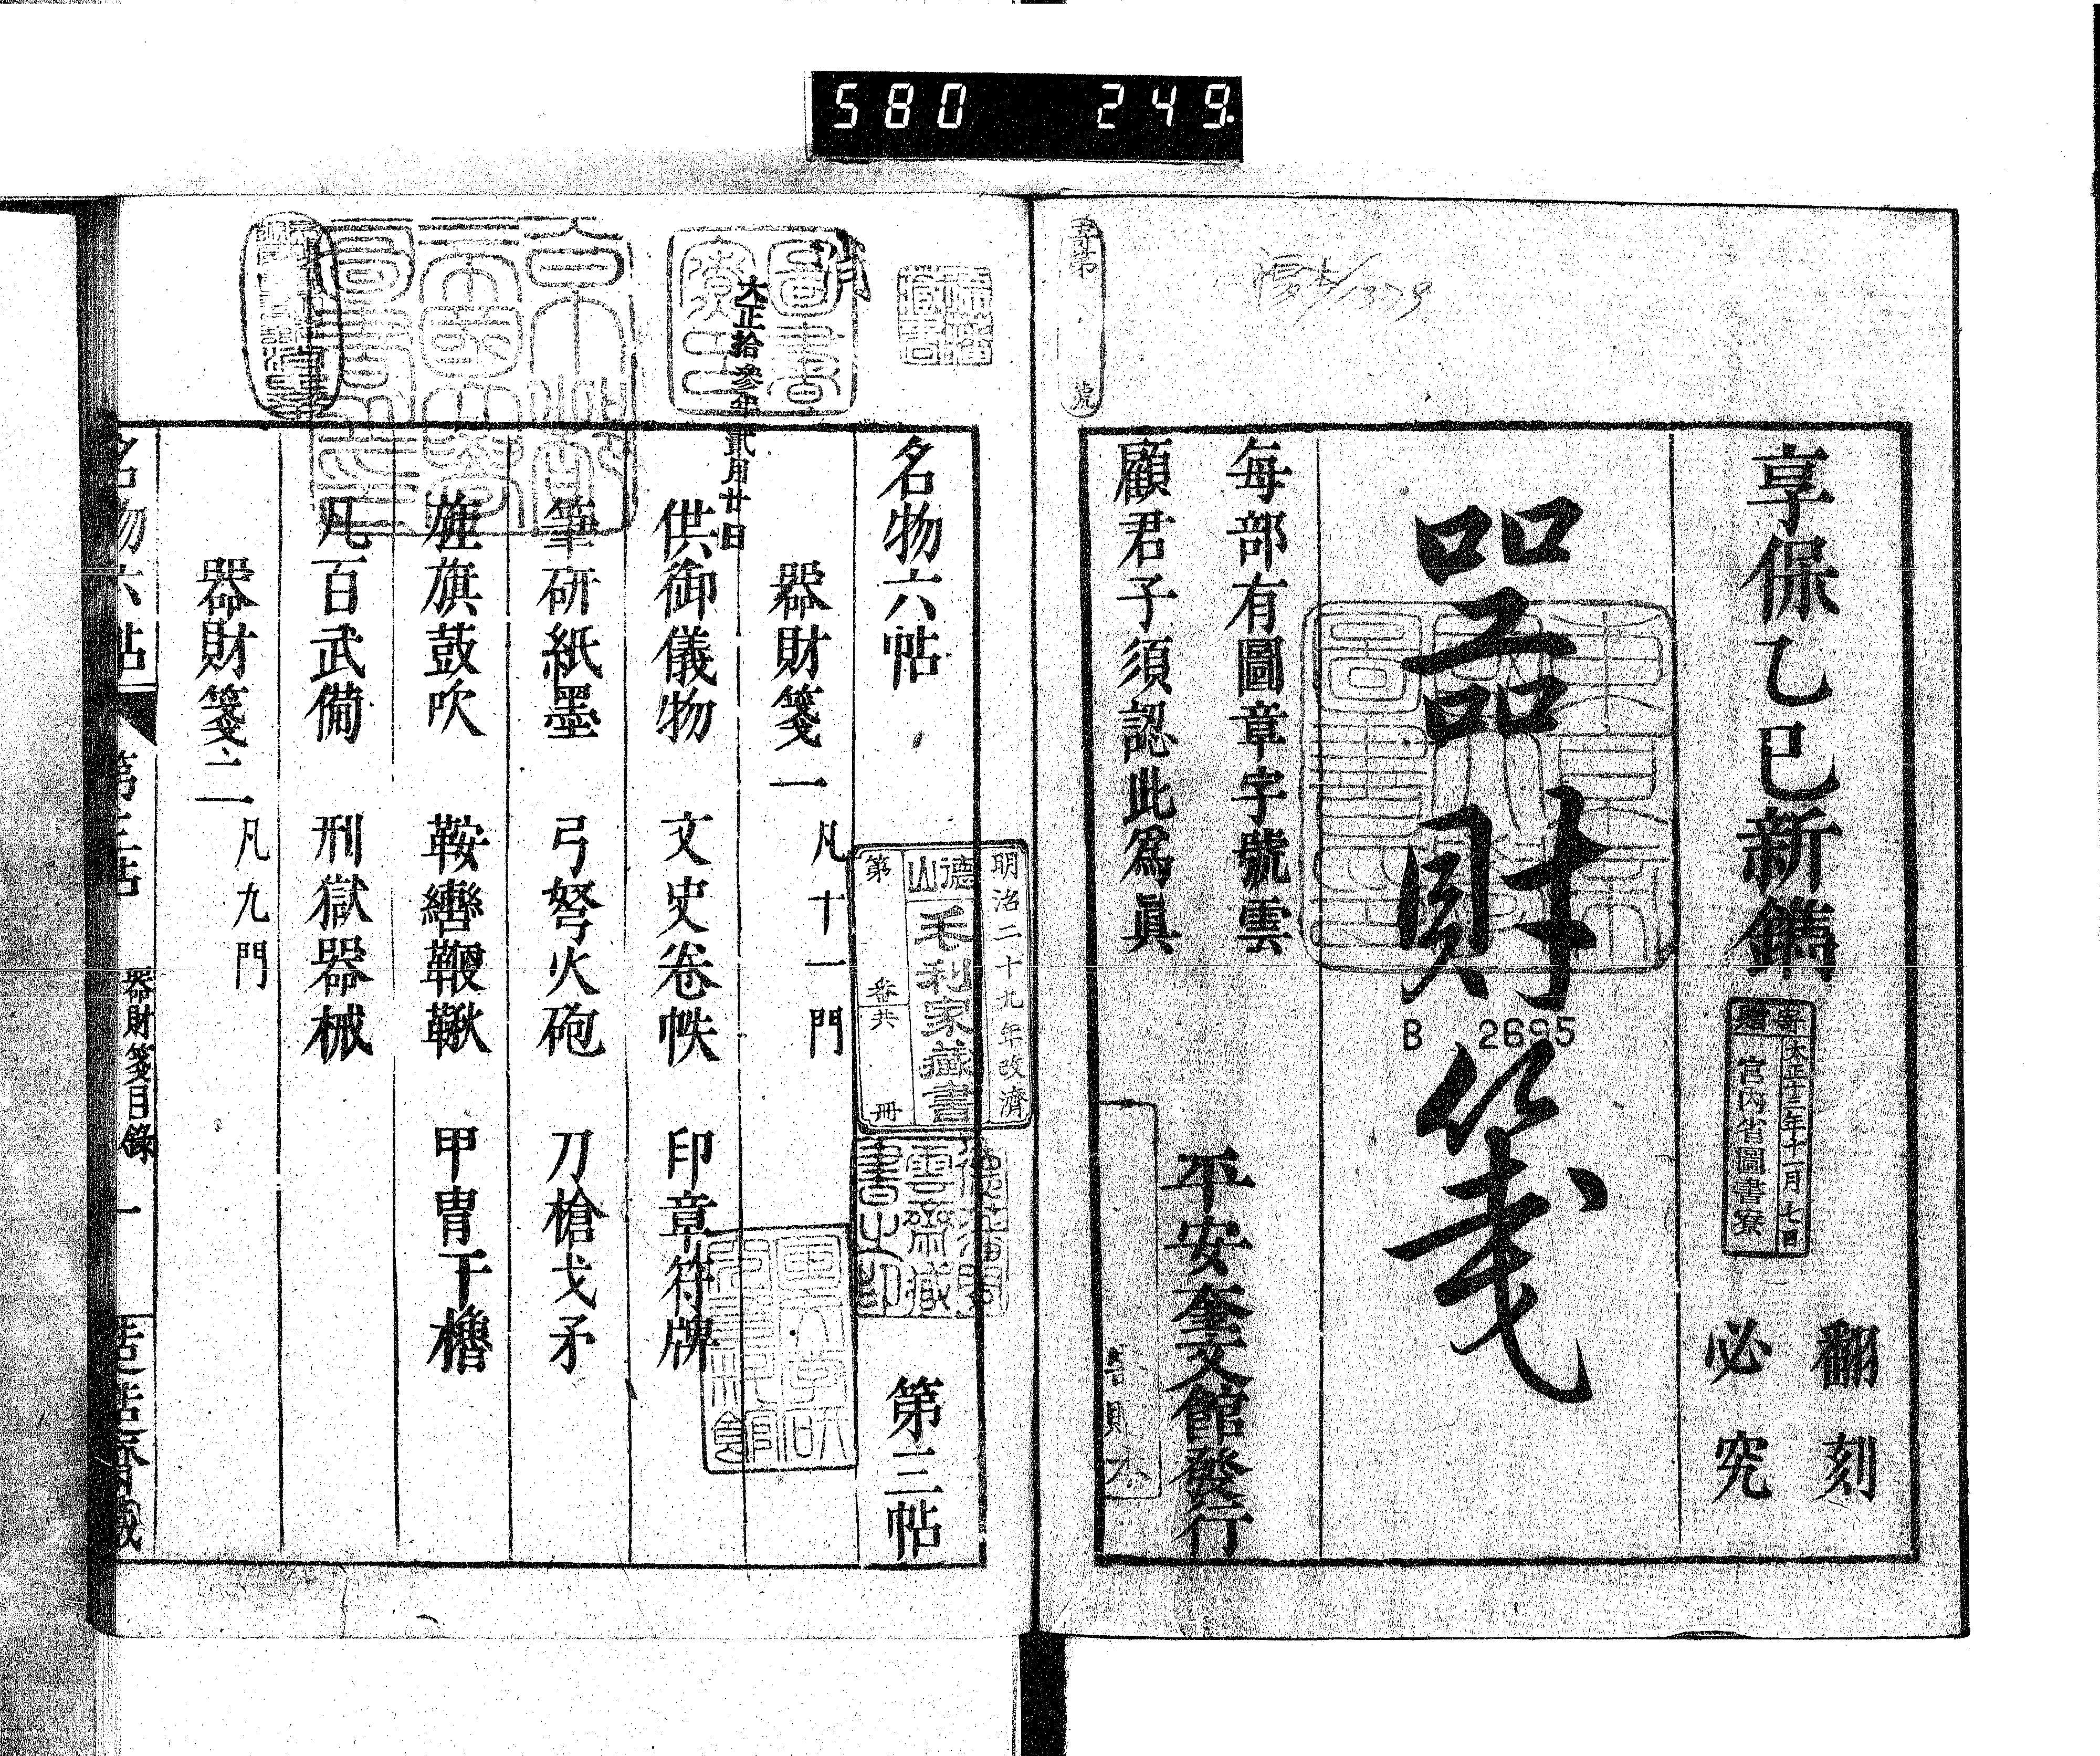 580 249
享保乙巳新鐫
翻刻
必究
器財箋
B 2695
每部有圖章字號雲
顧君子須認此爲眞
平安奎文館發行
寄贈
大正十三年十一月七日
宮内省圖書寮
號
名物六帖 第三帖
器財箋一 凡十一門
供御儀物 文史卷帙 印章符牌
筆研紙墨 弓弩火砲 刀槍戈矛
旌旗鼓吹 鞍轡鞭鞦 甲冑干櫓
凡百武備 刑獄器械
器財箋二 凡九門
名物六帖 第三帖 器財箋目錄 一
明治二十九年改濟
德山
毛利家藏書
第
共
冊
大正拾參年貳月廿日
消
圖書